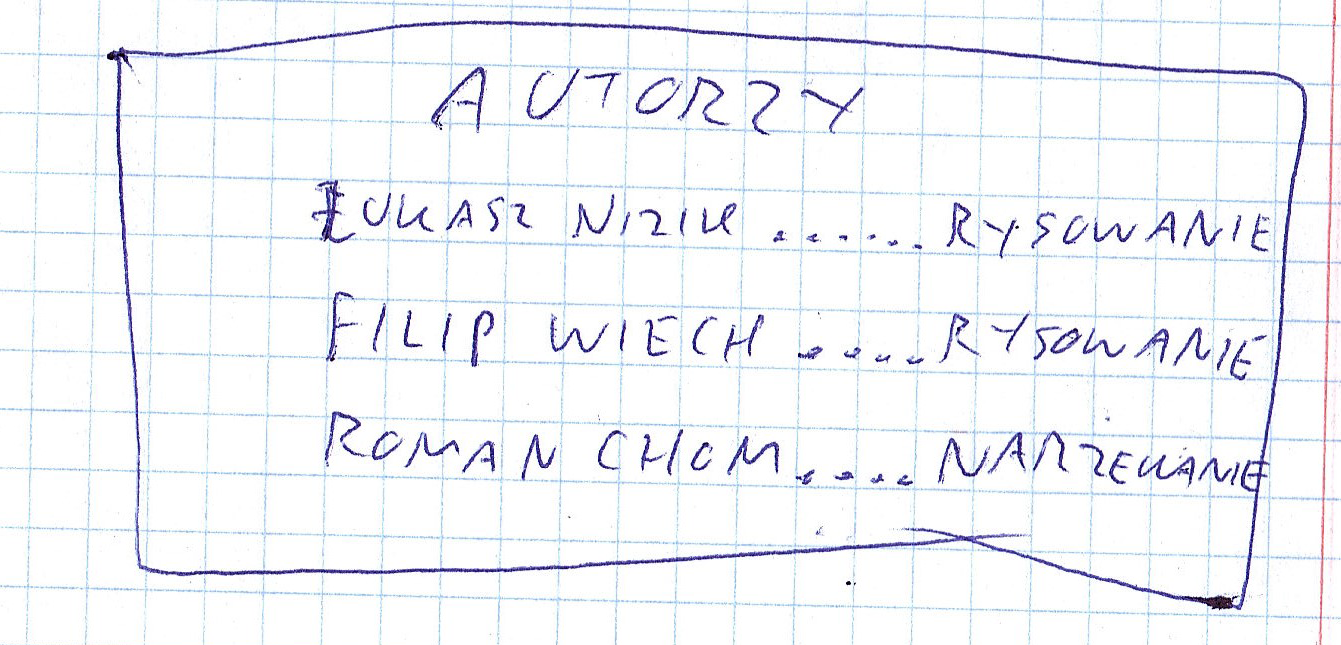 AUTORZY
ŁUKASZ NIZIK ....... RYSOWANIE
FILIP WIECH ..... RYSOWANIE
ROMAN CHOM .... NARZEKANIE